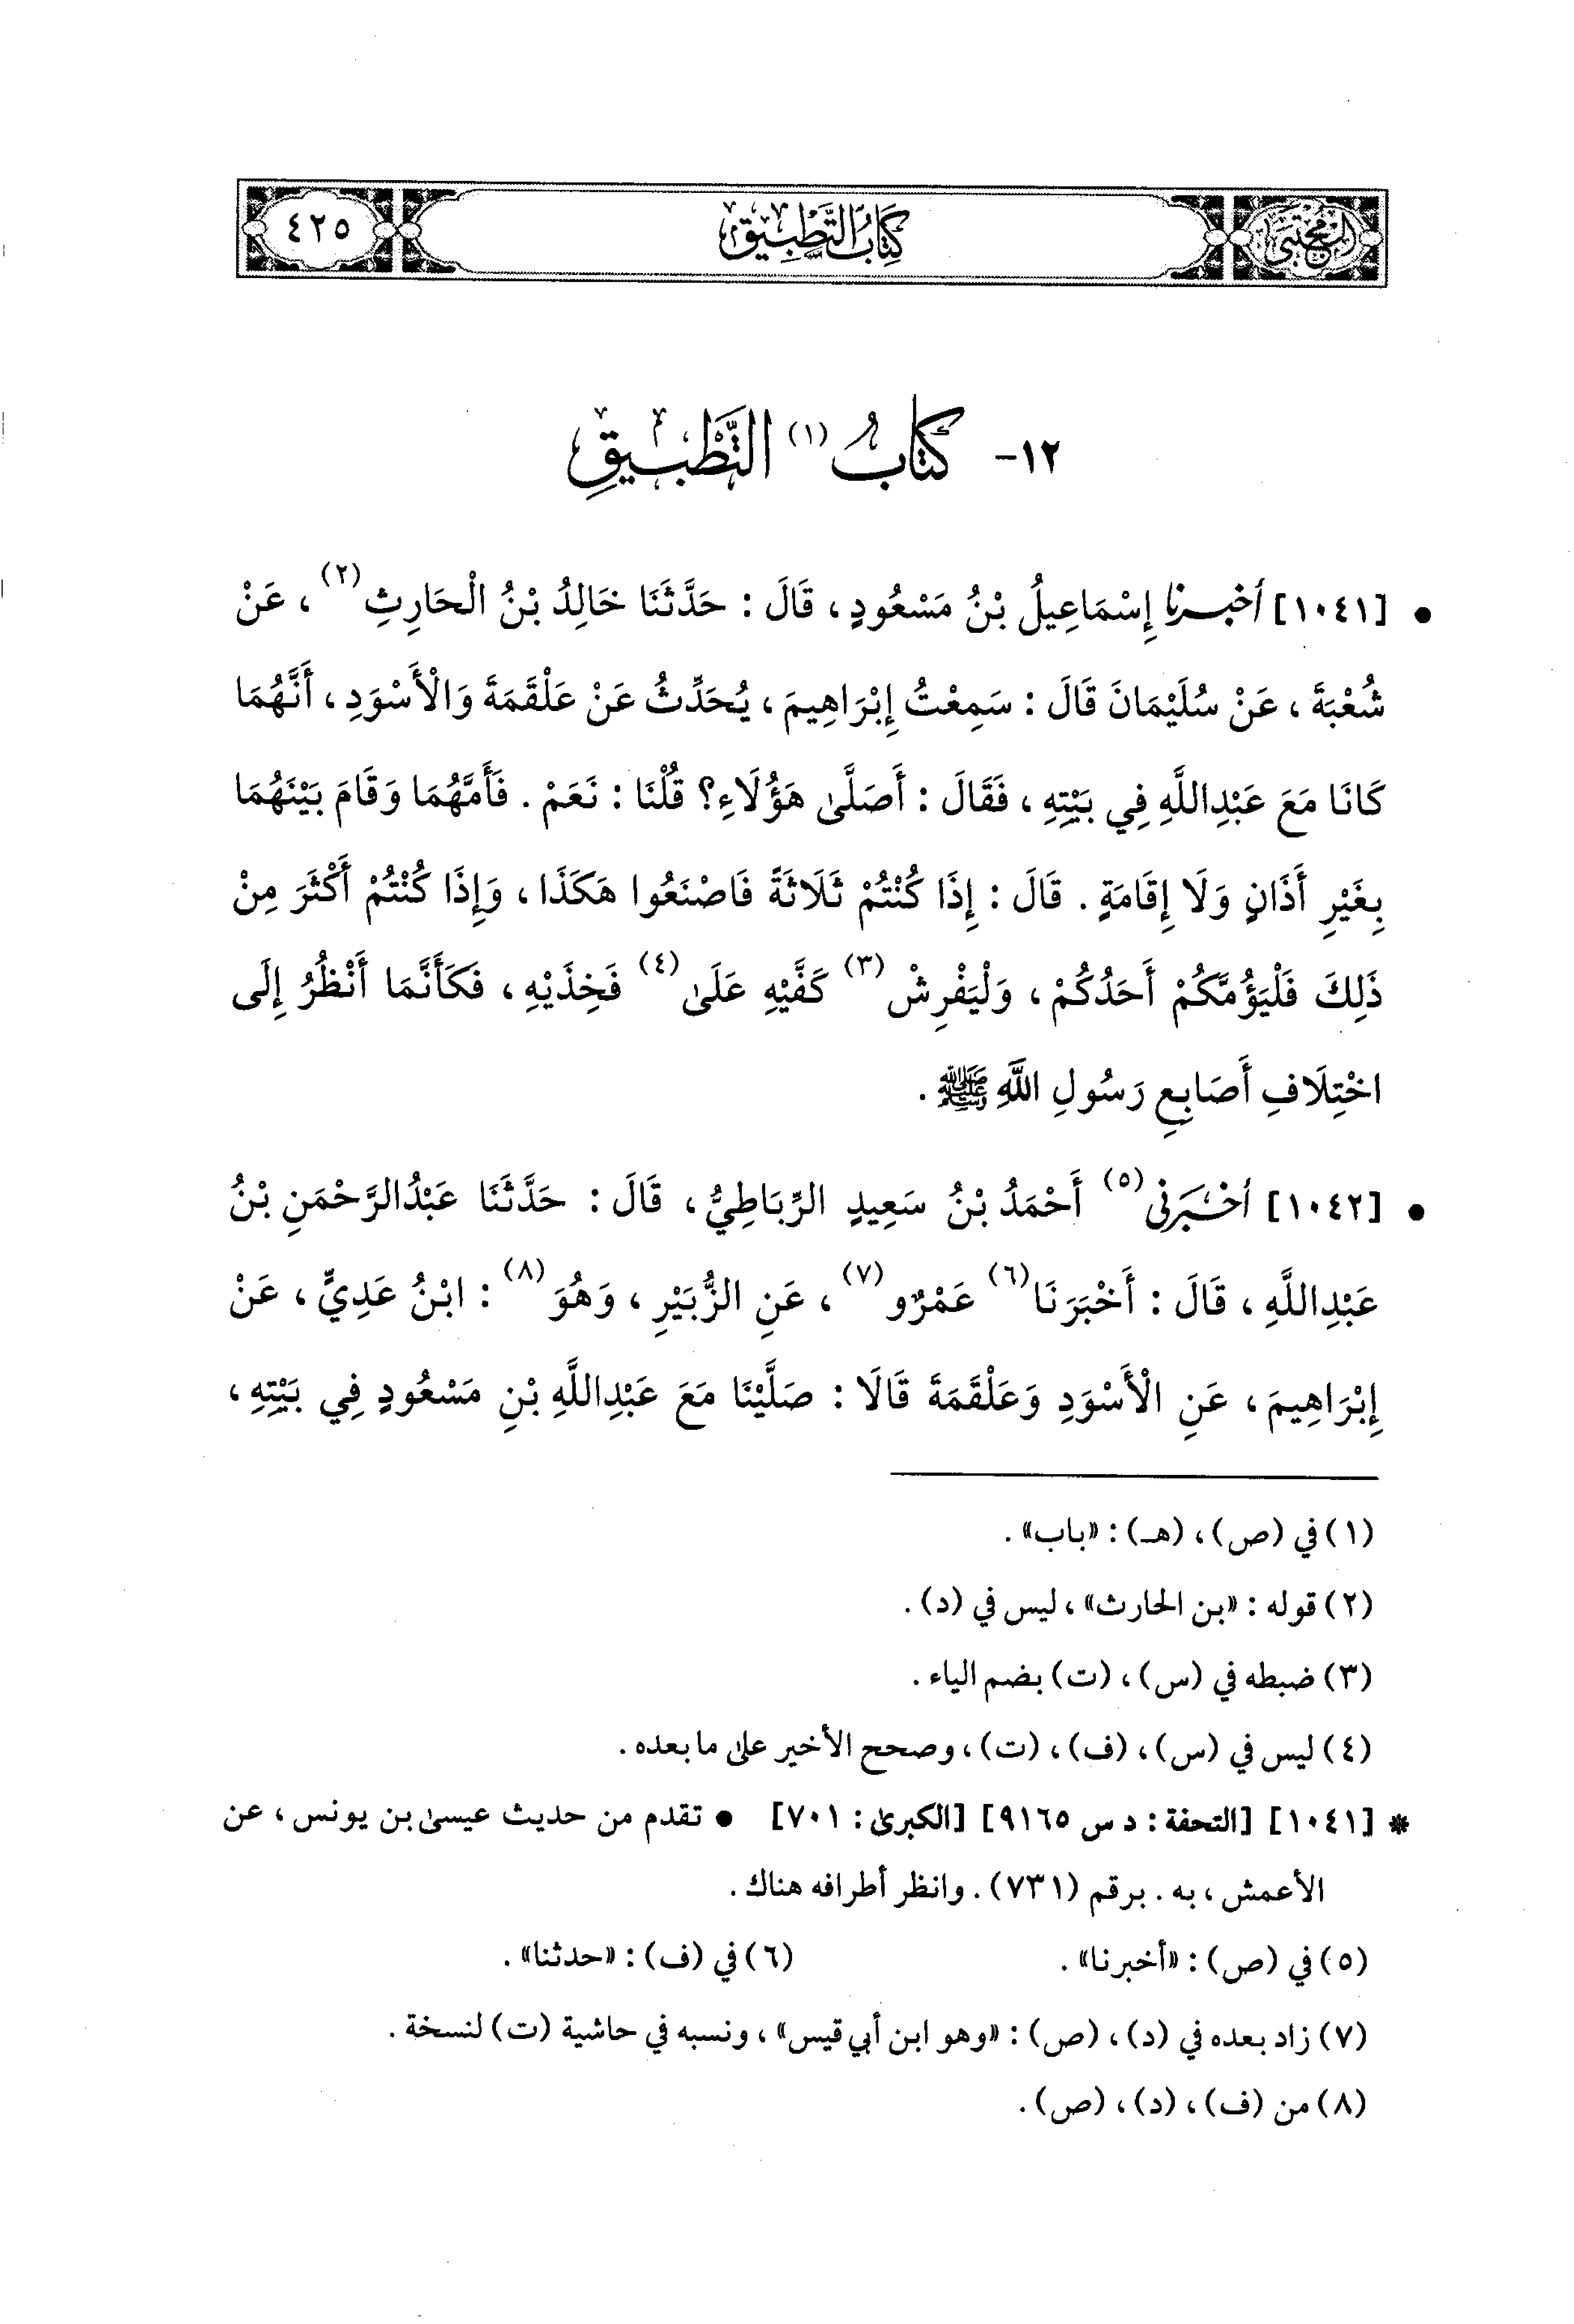 المجتبى كتاب التطبيق ٤٢٥
١٢- كِتَابُ (١) التَّطْبِيقِ
• [١٠٤١] أخبرنا إِسْمَاعِيلُ بْنُ مَسْعُودٍ، قَالَ: حَدَّثَنَا خَالِدُ بْنُ الْحَارِثِ (٢)، عَنْ
شُعْبَةَ، عَنْ سُلَيْمَانَ قَالَ: سَمِعْتُ إِبْرَاهِيمَ، يُحَدِّثُ عَنْ عَلْقَمَةَ وَالْأَسْوَدِ، أَنَّهُمَا
كَانَا مَعَ عَبْدِاللَّهِ فِي بَيْتِهِ، فَقَالَ: أَصَلَّى هَؤُلَاءِ؟ قُلْنَا: نَعَمْ. فَأَمَّهُمَا وَقَامَ بَيْنَهُمَا
بِغَيْرِ أَذَانٍ وَلَا إِقَامَةٍ. قَالَ: إِذَا كُنْتُمْ ثَلَاثَةً فَاصْنَعُوا هَكَذَا، وَإِذَا كُنْتُمْ أَكْثَرَ مِنْ
ذَلِكَ فَلْيَؤُمَّكُمْ أَحَدُكُمْ، وَلْيَفْرِشْ (٣) كَفَّيْهِ عَلَى (٤) فَخِذَيْهِ، فَكَأَنَّمَا أَنْظُرُ إِلَى
اخْتِلَافِ أَصَابِعِ رَسُولِ اللَّهِ ﷺ.
• [١٠٤٢] أَخْبَرَنِي (٥) أَحْمَدُ بْنُ سَعِيدٍ الرِّبَاطِيُّ، قَالَ: حَدَّثَنَا عَبْدُالرَّحْمَنِ بْنُ
عَبْدِاللَّهِ، قَالَ: أَخْبَرَنَا (٦) عَمْرٌو (٧)، عَنِ الزُّبَيْرِ، وَهُوَ (٨): ابْنُ عَدِيٍّ، عَنْ
إِبْرَاهِيمَ، عَنِ الْأَسْوَدِ وَعَلْقَمَةَ قَالَا: صَلَّيْنَا مَعَ عَبْدِاللَّهِ بْنِ مَسْعُودٍ فِي بَيْتِهِ،
(١) في (ص)، (هـ): «باب».
(٢) قوله: «بن الحارث»، ليس في (د).
(٣) ضبطه في (س)، (ت) بضم الياء.
(٤) ليس في (س)، (ف)، (ت)، وصحح الأخير على ما بعده.
* [١٠٤١] [التحفة: د س ٩١٦٥] [الكبرى: ٧٠١] • تقدم من حديث عيسى بن يونس، عن
الأعمش، به. برقم (٧٣١). وانظر أطرافه هناك.
(٥) في (ص): «أخبرنا». (٦) في (ف): «حدثنا».
(٧) زاد بعده في (د)، (ص): «وهو ابن أبي قيس»، ونسبه في حاشية (ت) لنسخة.
(٨) من (ف)، (د)، (ص).